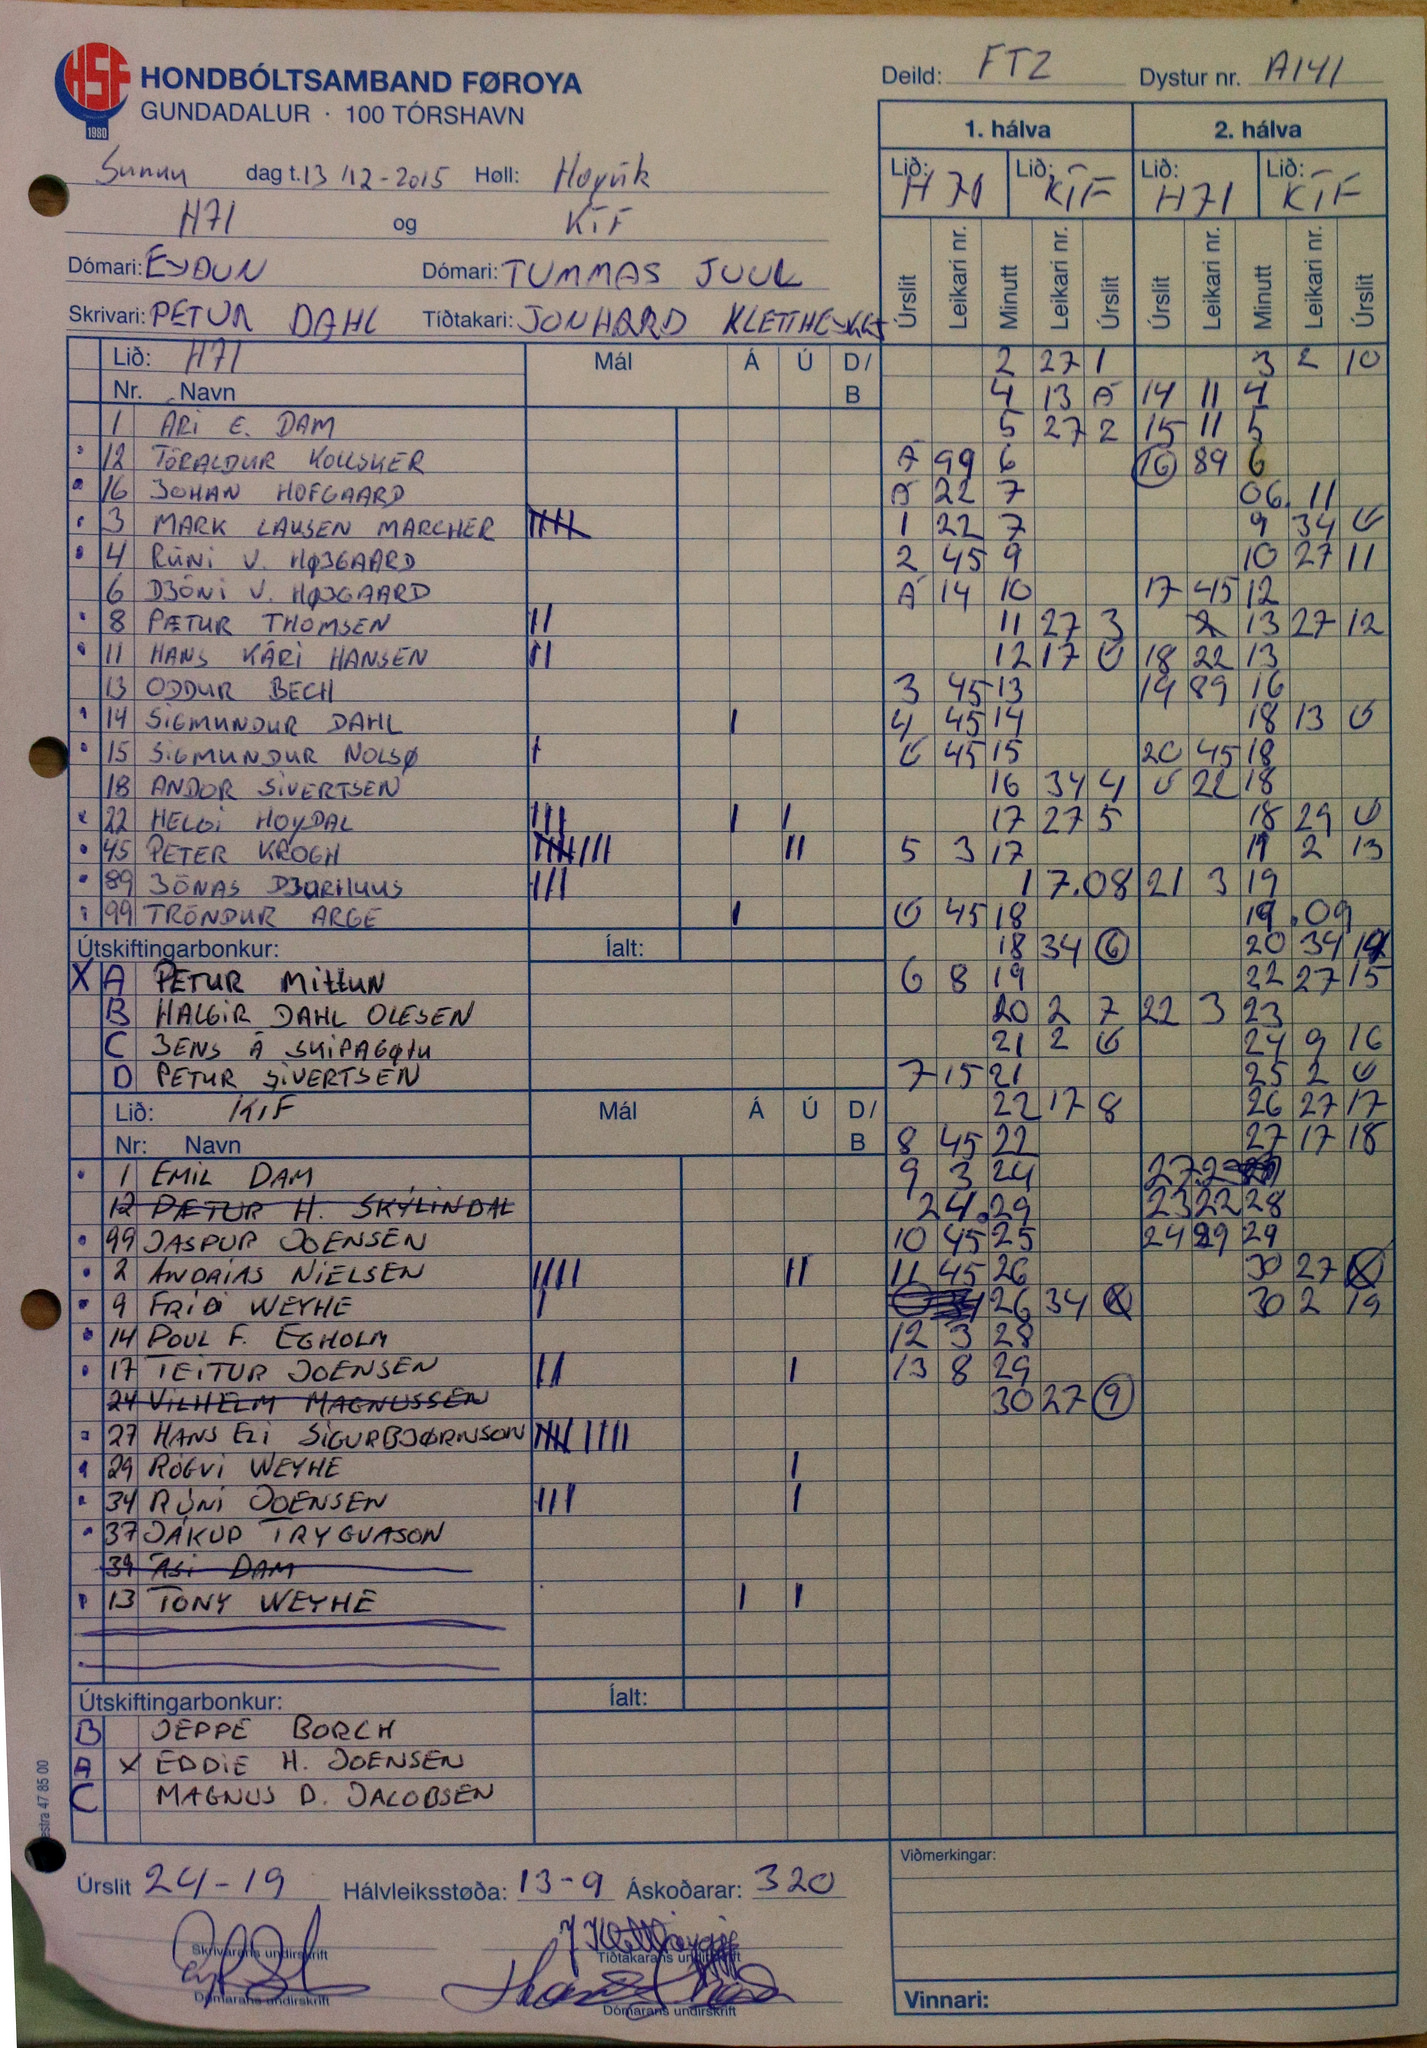 HSF
1980
HONDBÓLTSAMBAND FØROYA
GUNDADALUR · 100 TÓRSHAVN
Deild: FT2 Dystur nr. A141
Sunnu dag t. 13/12-2015 Høll: Hoyvík
H71 og KÍF
Dómari: EYÐUN Dómari: TUMMAS JUUL
Skrivari: PETUR DAHL Tíðtakari: JONHARD
1. hálva 2. hálva
Lið: H71 Lið: KÍF Lið: H71 Lið: KÍF
Úrslit Leikari nr. Minutt Leikari nr. Úrslit Úrslit Leikari nr. Minutt Leikari nr. Úrslit
Lið: H71 Mál Á Ú D/B
Nr. Navn
1 ÁRI E. DAM
12 TÓRALDUR KOLLSKER
16 JOHAN HOFGAARD
3 MARK LAUSEN MARCHER
4 RÚNI V. HØJGAARD
6 DJÓNI V. HØJGAARD
8 PÆTUR THOMSEN
11 HANS KÁRI HANSEN
13 ODDUR BECH
14 SIGMUNDUR DAHL
15 SIGMUNDUR NOLSØ
18 ANDOR SIVERTSEN
22 HELGI HOYDAL
45 PETER KROGH
89 JÓNAS DJURHUUS
99 TRÓNDUR ARGE
Útskiftingarbonkur: Íalt:
X A PETUR Mittun
B HALGIR DAHL OLESEN
C JENS Á SKIPAGØTU
D PETUR SIVERTSEN
Lið: KIF Mál Á Ú D/B
Nr: Navn
1 EMIL DAM
12 PÆTUR H. SKÝLINDAL
99 JASPUR JOENSEN
2 ANDRIAS NIELSEN
9 FRÍÐI WEYHE
14 POUL F. EGHOLM
17 TEITUR JOENSEN
24 VILHELM MAGNUSSEN
27 HANS ELI SIGURBJØRNSON
29 RÓGVI WEYHE
34 RÚNI JOENSEN
37 JÁKUP TRYGVASON
39 ÁSI DAM
13 TONY WEYHE
Útskiftingarbonkur: Íalt:
B JEPPE BORCH
A X EDDIE H. JOENSEN
C MAGNUS D. JACOBSEN
2 27 1
4 13 Á
5 27 2
Á 99 6
Á 22 7
1 22 7
2 45 9
Á 14 10
11 27 3
12 17 Ú
3 45 13
4 45 14
Ú 45 15
16 34 4
17 27 5
5 3 17
17.08
Ú 45 18
18 34 6
6 8 19
20 2 7
21 2 Ú
7 15 21
22 17 8
8 45 22
9 3 24
24.29
10 45 25
11 45 26
26 34
12 3 28
13 8 29
30 27 9
3 2 10
14 11 4
15 11 5
16 89 6
06.11
9 34 Ú
10 27 11
17 45 12
13 27 12
18 22 13
19 89 16
18 13 Ú
20 45 18
Ú 22 18
18 29 Ú
19 2 13
21 3 19
19.09
20 34 14
22 27 15
22 3 23
24 9 16
25 2 Ú
26 27 17
27 17 18
23 22 28
24 89 29
30 27
30 2 19
Úrslit 24-19 Hálvleiksstøða: 13-9 Áskoðarar: 320
Skrivarans undirskrift Tíðtakarans undirskrift
Dómarans undirskrift Dómarans undirskrift
Viðmerkingar:
Vinnari:
estra 47 85 00